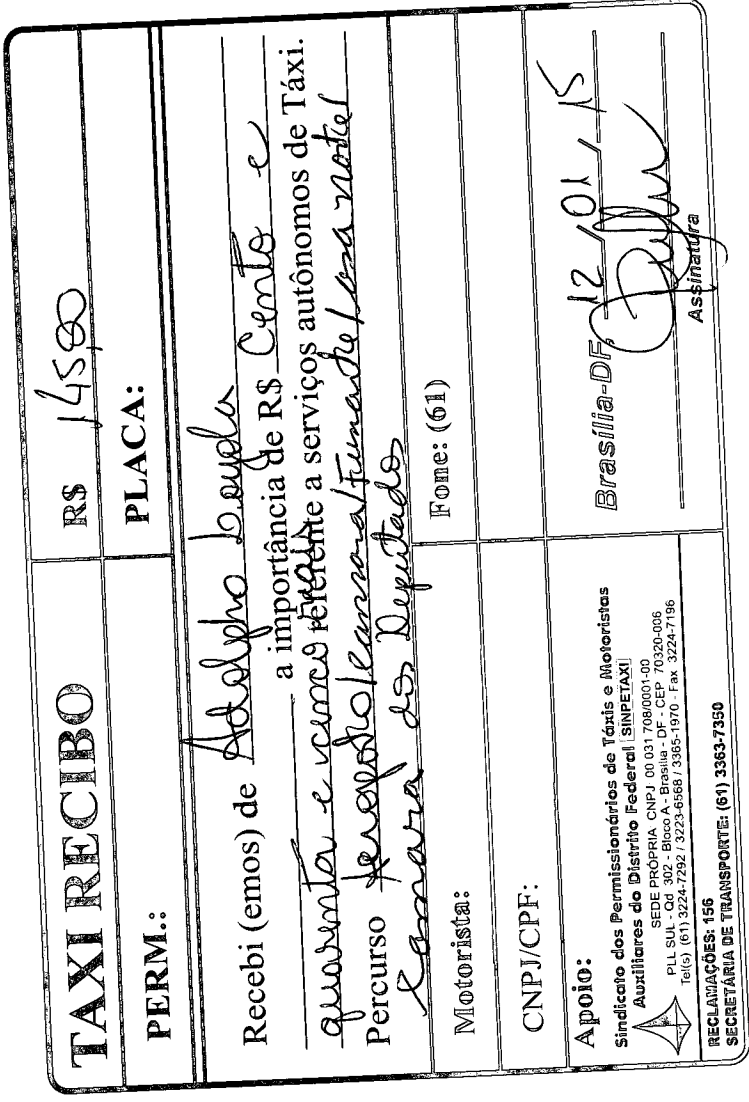 TAXI RECIBO
R$ 145,00
PERM.:
PLACA:
Recebi (emos) de Adolpho Loyola
a importância de R$ Cento e
quarenta e cinco reais referente a serviços autônomos de Táxi.
Percurso Aeroporto / camara / Funarte / asa norte /
Camara dos Deputados
Motorista:
Fone: (61)
CNPJ/CPF:
Apoio:
Sindicato dos Permissionários de Táxis e Motoristas
Auxiliares do Distrito Federal SINPETAXI
SEDE PRÓPRIA CNPJ 00 031 708/0001-00
PLL SUL - Qd 302 - Bloco A - Brasília - DF - CEP 70320-006
Tel(s) (61) 3224-7292 / 3223-6568 / 3365-1970 - Fax 3224-7196
Brasília-DF, 12 / 01 / 15
Assinatura
RECLAMAÇÕES: 156
SECRETÁRIA DE TRANSPORTE: (61) 3363-7350